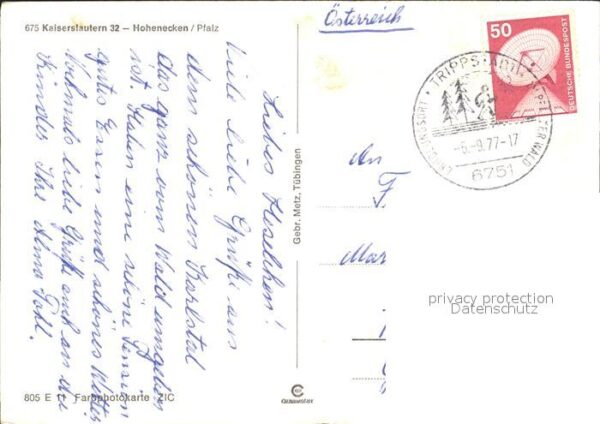 675 Kaiserslautern 32 — Hohenecken / Pfalz
Österreich
50
DEUTSCHE BUNDESPOST
TRIPPSTADT
PFÄLZER WALD
ERHOLUNGSORT
-6.-9.77-17
6751
Liebes Heselchen!
Viele liebe Grüße aus
dem schönen Karlstal
das ganz vom Wald umgeben
ist. Haben eine schöne Pension
gutes Essen und schönes Wetter
Nochmals liebe Grüße auch an die
Kinder Ihre Alma Pohl.
Gebr. Metz, Tübingen
An
F.
Mar
privacy protection
Datenschutz
805 E 11 Farbphotokarte ZIC